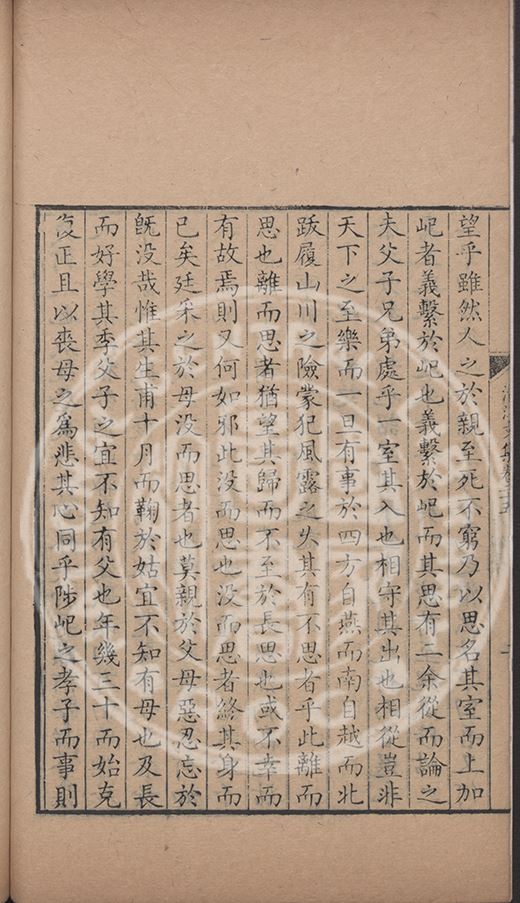 望乎雖然人之於親至死不窮乃以思名其室而上加
屺者義繫於屺也義繫於屺而其思有二余從而論之
夫父子兄弟處乎一室其入也相守其出也相從豈非
天下之至樂而一旦有事於四方自燕而南自越而北
跋履山川之險蒙犯風露之久其有不思者乎此離而
思也離而思者猶望其歸而不至於長思也或不幸而
有故焉則又何如邪此没而思也没而思者終其身而
已矣廷采之於母没而思者也莫親於父母惡忍忘於
旣没哉惟其生甫十月而鞠於姑宜不知有母也及長
而好學其季父子之宜不知有父也年幾三十而始克
復正且以喪母之爲悲其心同乎陟屺之孝子而事則